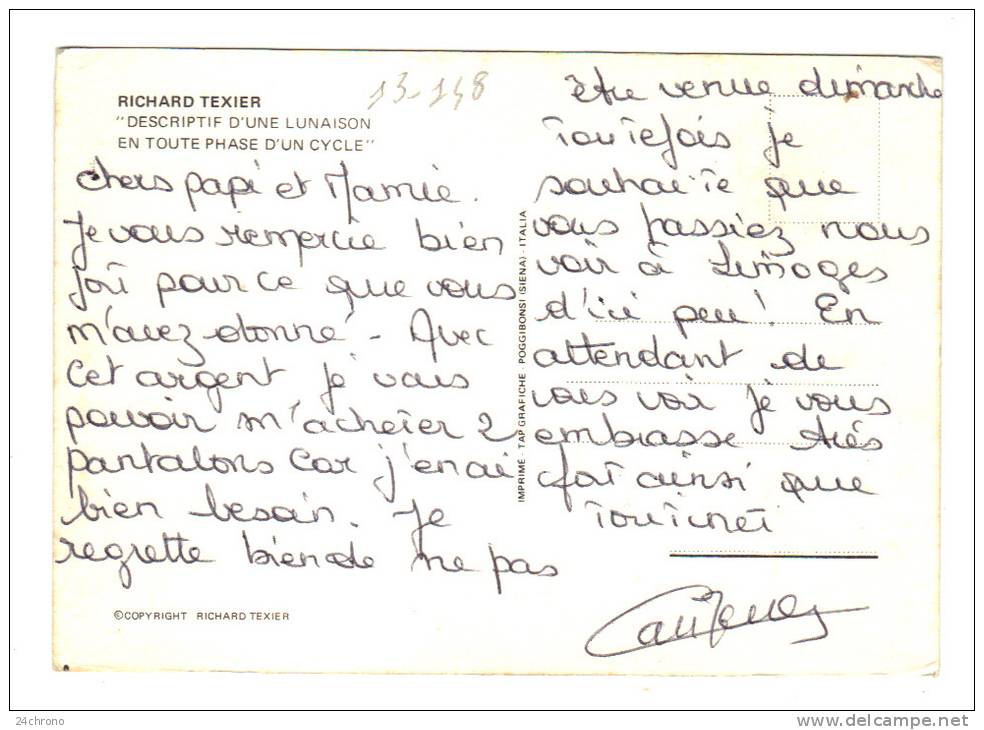 13-148
RICHARD TEXIER
"DESCRIPTIF D'UNE LUNAISON
EN TOUTE PHASE D'UN CYCLE"
Chers papi et Mamie.
Je vous remercie bien
fort pour ce que vous
m'avez donné - Avec
cet argent je vais
pouvoir m'acheter 2
pantalons car j'en ai
bien besoin. Je
regrette bien de ne pas
©COPYRIGHT RICHARD TEXIER
IMPRIMÉ - TAP GRAFICHE - POGGIBONSI (SIENA) - ITALIA
être venue dimanche
Toutefois je
souhaite que
vous passiez nous
voir à Limoges
d'ici peu! En
attendant de
vous voir je vous
embrasse très
fort ainsi que
24chrono
www.delcampe.net